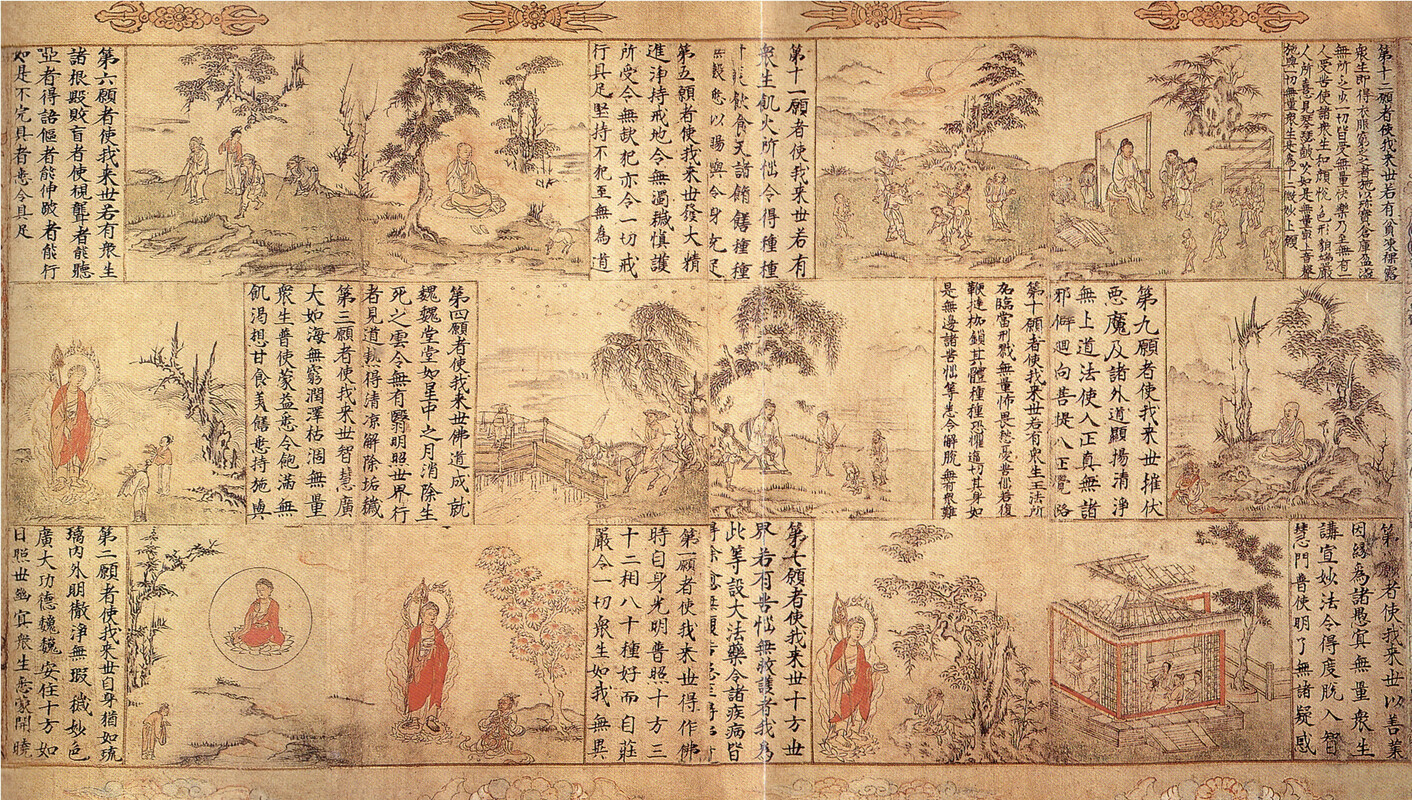 第十二願者使我来世若有貧凍裸露
衆生即得衣服窮乏者施以珍寶倉庫盈溢
無所乏少一切皆受無量快樂乃至無有一
人受苦使諸衆生和顔悅色形貌端嚴
人所喜見琴瑟鼓吹如是無量最上音聲
施與一切無量衆生是為十二微妙上願
第十一願者使我来世若有
衆生飢火所惱令得種種
飲食天諸餚饍種種
悉以賜與令身充足
第五願者使我来世發大精
進淨持戒地令無濁穢慎護
所受令無缺犯亦令一切戒
行具足堅持不犯至無為道
第六願者使我来世若有衆生
諸根毀敗盲者使視聾者能聽
瘂者得語傴者能伸跛者能行
如是不完具者悉令具足
第九願者使我来世摧伏
惡魔及諸外道顯揚清淨
無上道法使入正真無諸
邪僻迴向菩提八正覺路
第十願者使我来世若有衆生王法所
加臨當刑戮無量怖畏愁憂苦惱若復
鞭撻枷鎖其體種種恐懼逼切其身如
是無邊諸苦惱等悉令解脫無有衆難
第四願者使我来世佛道成就
巍巍堂堂如星中之月消除生
死之雲令無有翳明照世界行
者見道熱得清凉解除垢穢
第三願者使我来世智慧廣
大如海無窮潤澤枯涸無量
衆生普使蒙益悉令飽滿無
飢渴想甘食美饍悉持施與
第願者使我来世以善業
因緣為諸愚冥無量衆生
講宣妙法令得度脫入智
慧門普使明了無諸疑惑
第七願者使我来世十方世
界若有苦惱無救護者我為
此等設大法藥令諸疾病皆
得除愈
第一願者使我来世得作佛
時自身光明普照十方三
十二相八十種好而自莊
嚴令一切衆生如我無異
第二願者使我来世自身猶如琉
璃內外明徹淨無瑕穢妙色
廣大功德巍巍安住十方如
日照世幽冥衆生悉蒙開曉